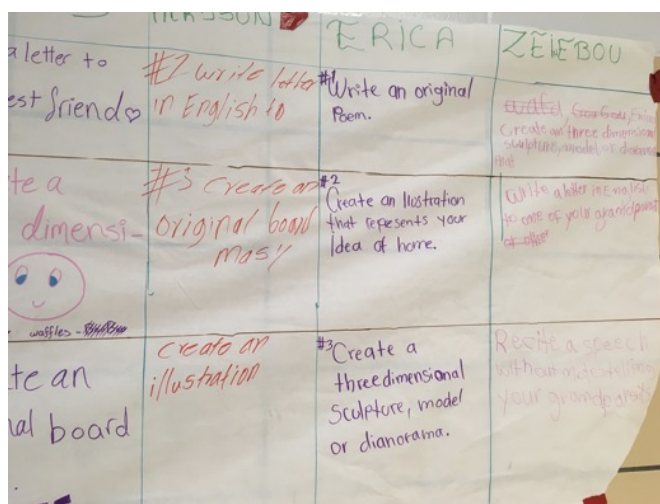 ERICA
ZEIEBOU
a letter to
est friend
#2 write letter
in English to
#1
Write an original
Poem.
Create an three dimensional
sculpture, model or
te a
dimensi-
waffles -
#3 create an
original board
masy
#2
Create an Ilustration
that repesents your
Idea of home.
Write a letter in English
to one of your grandparent
or other
te an
al board
.
create an
illustration
#3 Create a
three dimensional
Sculpture, model
or dianorama.
Recite a speech
without
your grandparents